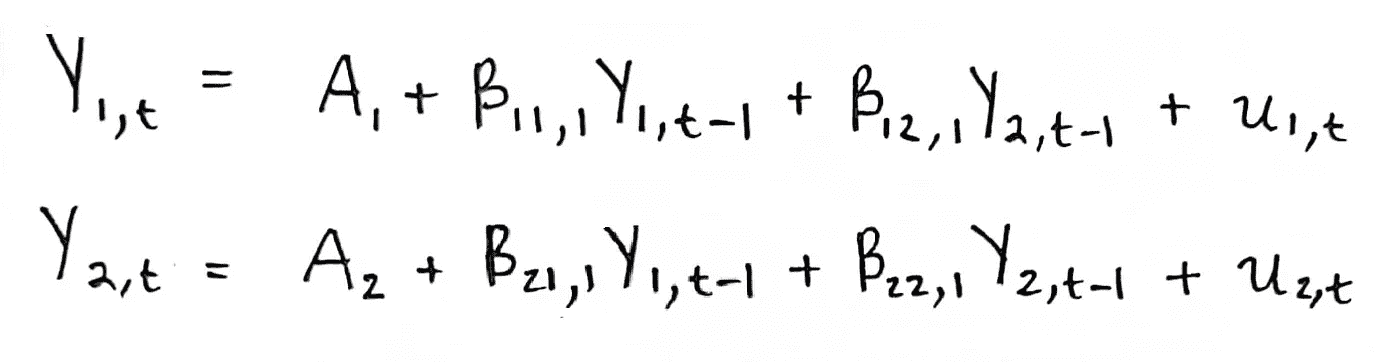 Y₁,t = A₁ + β₁₁,₁ Y₁,t-1 + β₁₂,₁ Y₂,t-1 + u₁,t
Y₂,t = A₂ + β₂₁,₁ Y₁,t-1 + β₂₂,₁ Y₂,t-1 + u₂,t